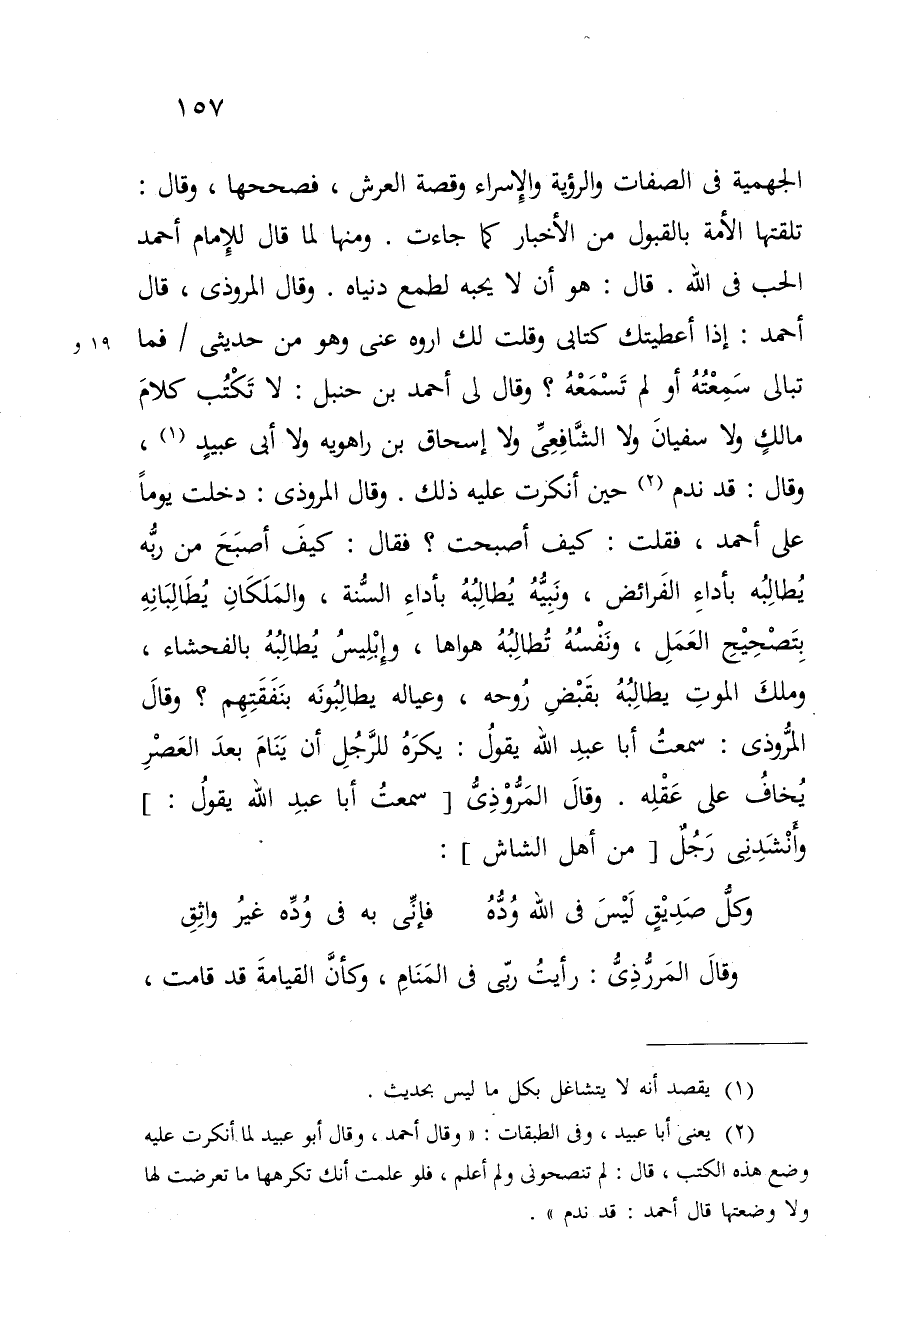 ١٥٧
الجهمية فى الصفات والرؤية والإسراء وقصة العرش ، فصححها ، وقال :
تلقتها الأمة بالقبول من الأخبار كما جاءت . ومنها لما قال للإمام أحمد
الحب فى الله . قال : هو أن لا يحبه لطمع دنياه . وقال المروذى ، قال
أحمد : إذا أعطيتك كتابى وقلت لك اروه عنى وهو من حديثى / فما ١٩ و
تبالى سَمِعْتُهُ أو لم تَسْمَعْهُ ؟ وقال لى أحمد بن حنبل : لا تَكْتُب كلامَ
مالكٍ ولا سفيانَ ولا الشَّافِعِىِّ ولا إسحاق بن راهويه ولا أبى عبيدٍ (١) ،
وقال : قد ندم (٢) حين أنكرت عليه ذلك . وقال المروذى : دخلت يوماً
على أحمد ، فقلت : كيف أصبحت ؟ فقال : كيفَ أصبَحَ من ربُّه
يُطالِبُه بأداءِ الفَرائض ، ونَبِيُّهُ يُطالِبُهُ بأداءِ السُّنة ، والمَلَكَانِ يُطَالِبَانِهِ
بِتَصْحِيْحِ العَمَلِ ، ونَفْسُهُ تُطالِبُهُ هواها ، وإِبْلِيسُ يُطالِبُهُ بالفحشاء ،
وملكَ الموتِ يطالِبُهُ بقَبْضِ رُوحه ، وعياله يطالِبُونَه بنَفَقَتِهِم ؟ وقالَ
المرُّوذى : سمعتُ أبا عبدِ الله يقولُ : يكرَهُ للرَّجُلِ أن يَنَامَ بعدَ العَصْرِ
يُخافُ على عَقْلِه . وقالَ المَرُّوْذِىُّ [ سمعتُ أبا عبدِ الله يقولُ : ]
وأَنْشَدِنِى رَجُلٌ [ من أهل الشاش ] :
وكلُّ صَدِيْقٍ لَيْسَ فى الله وُدُّهُ فإنِّى به فى وُدِّه غيرُ واثِقِ
وقالَ المَررُّذِىُّ : رأيتُ ربّى فى المَنَامِ ، وكأنَّ القيامةَ قد قامت ،
(١) يقصد أنه لا يتشاغل بكل ما ليس بحديث .
(٢) يعنى أبا عبيد ، وفى الطبقات : « وقال أحمد ، وقال أبو عبيد لما أنكرت عليه
وضع هذه الكتب ، قال : لم تنصحونى ولم أعلم ، فلو علمت أنك تكرهها ما تعرضت لها
ولا وضعتها قال أحمد : قد ندم » .